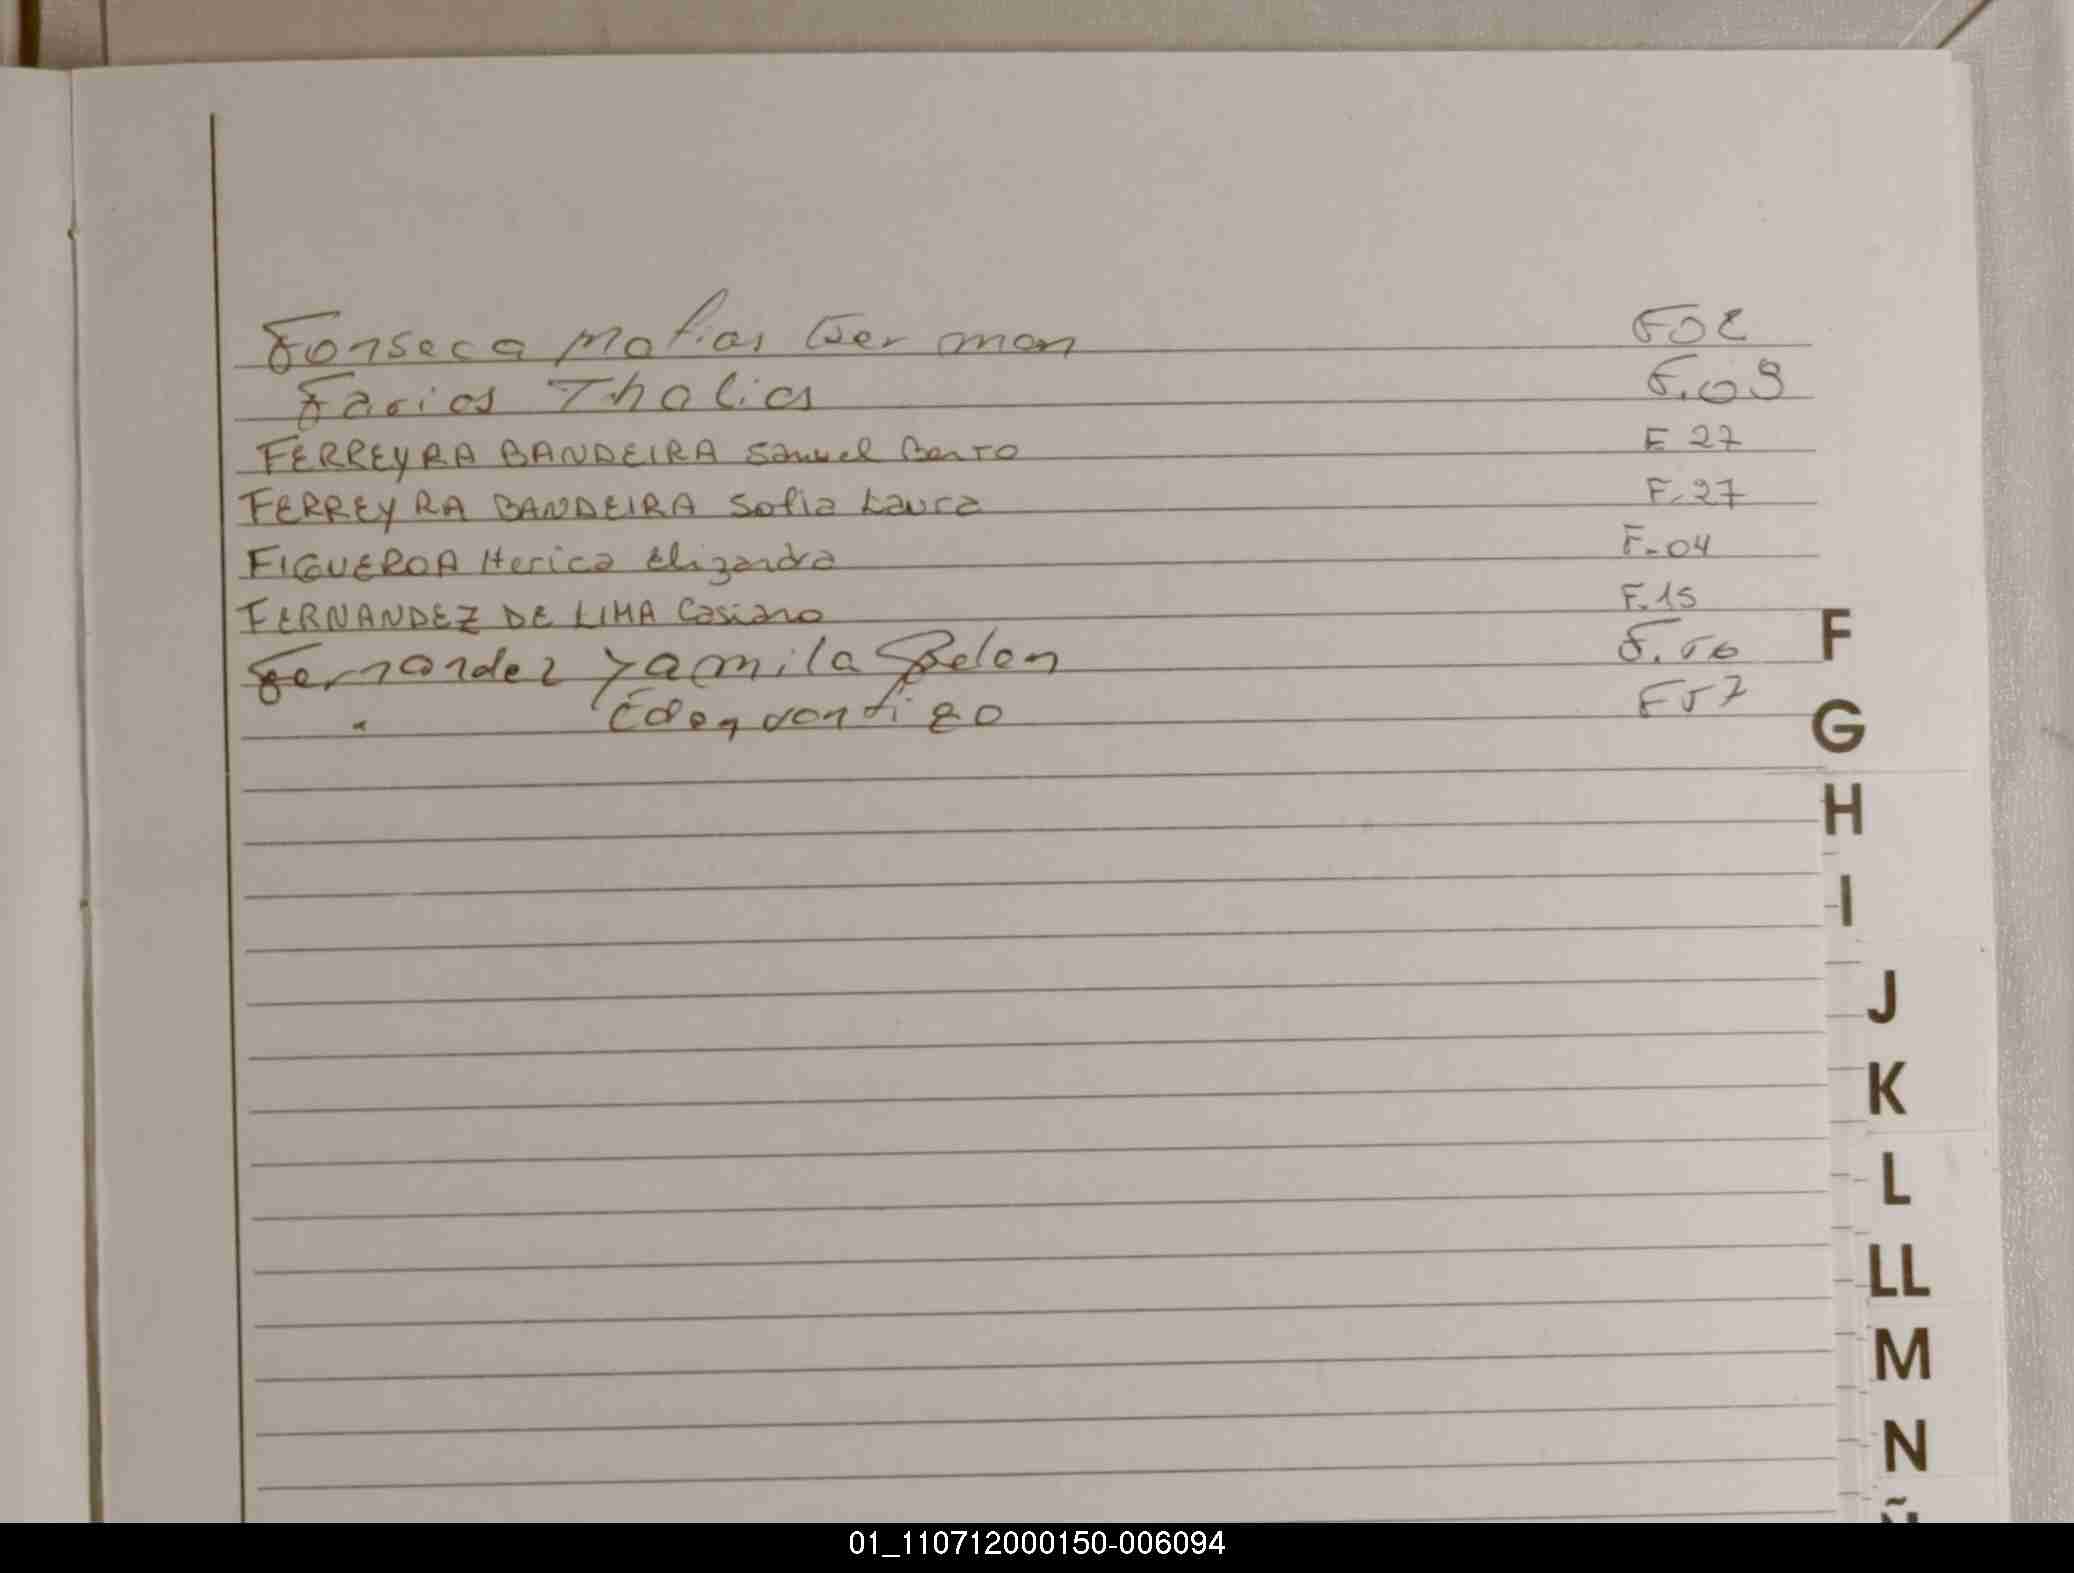 Fonseca Matias German F02
Farias Thalia F.09
FERREYRA BANDEIRA Samuel Bento F 27
FERREYRA BANDEIRA Sofia Laura F-27
FIGUEROA Herica Elizandra F-04
FERNANDEZ DE LIMA Casiano F.15
Fernandez Yamila Belen F.56
" F57
F
G
H
I
J
K
L
LL
M
N
Ñ
01_110712000150-006094